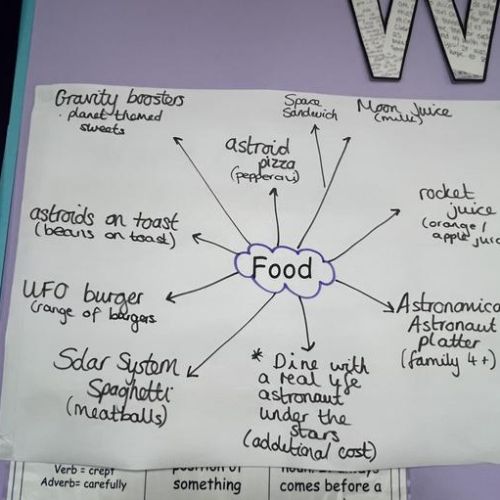 W
Gravity boosters
. planet themed
sweets
Space
Sandwich
Moon Juice
(milk)
astroid
pizza
(pepperoni)
rocket
juice
(orange /
apple juic
astroids on toast
(beans on toast)
Food
UFO burger
(range of burgers
Astronomica
Astronaut
platter
(family 4+)
Solar System
Spaghetti
(meatballs)
* Dine with
a real life
astronaut
under the
stars
(additional cost)
Verb = crept
Adverb= carefully
position of
something
comes before a